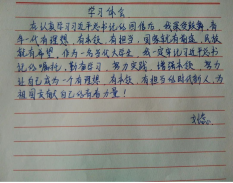 学习体会
在认真学习习近平总书记的回信后，我深受鼓舞，青
年一代有理想，有本领，有担当，国家就有前途，民族
就有希望。作为一名当代大学生，我一定牢记习近平总书
记的嘱托，勤奋学习，努力实践，增强本领，努力
让自己成为一个有理想，有本领，有担当的时代新人，为
祖国贡献自己的青春力量！